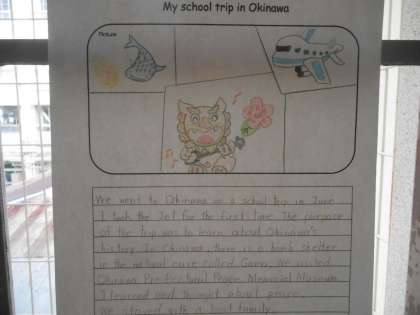 My school trip in Okinawa
Picture
We went to Okinawa as a school trip in June.
I took the Jet for the first time. The purpose
of the trip was to learn about Okinawa's
history. In Okinawa, there is a bomb shelter
in the natural cave called Gama. We visited
Okinawa Prefectural Peace Memorial Museum.
I learned and thought about peace.
We stayed with a host family.